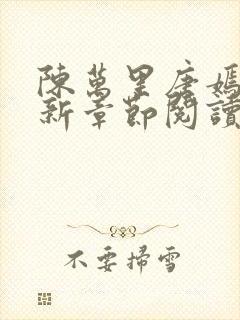 陳萬里唐嫣
新章節閱讀
不要掃雪